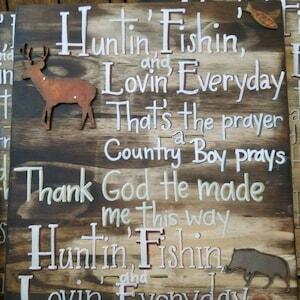 Huntin', Fishin',
and
Lovin' Everyday
That's the prayer
a
Country Boy prays
Thank God He made
me this way
Huntin', Fishin,
and
Lovin' Everyday